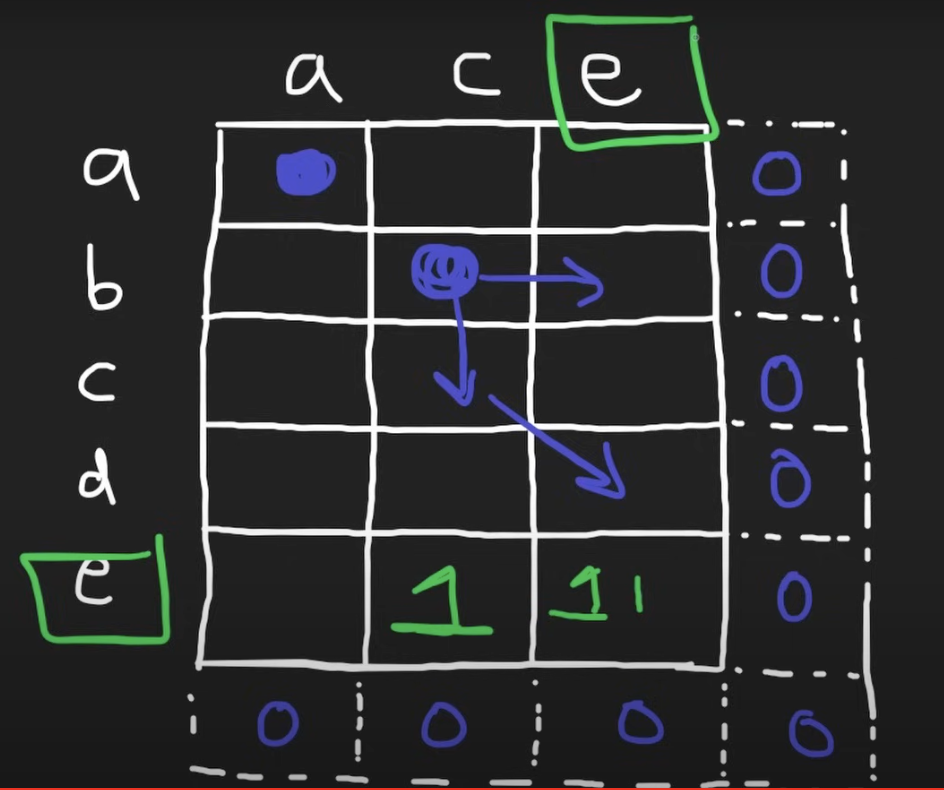 a c e
a 0
b 0
c 0
d 0
e 1 1 0
0 0 0 0